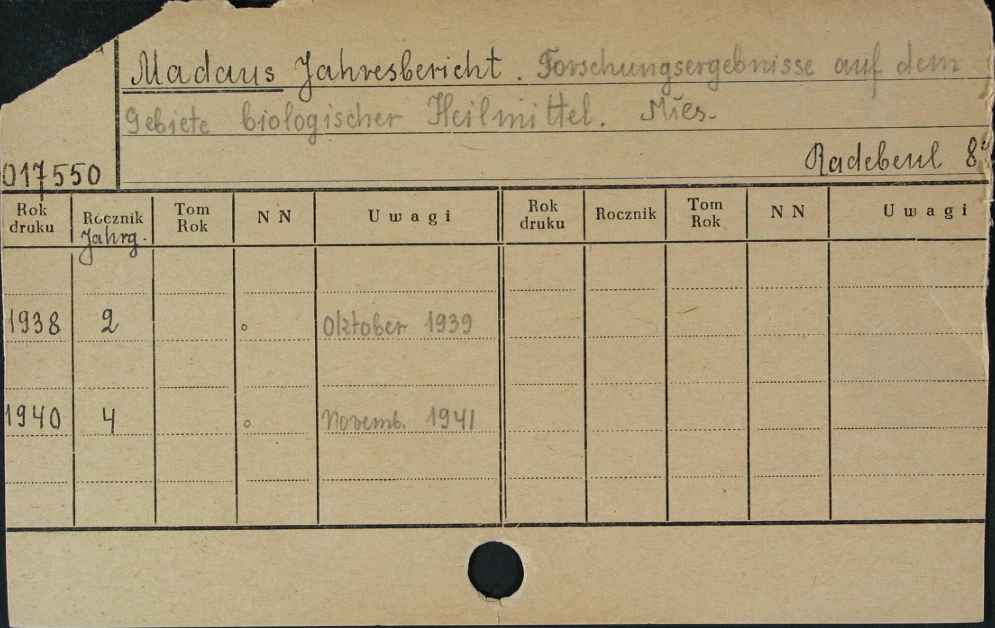 Madaus Jahresbericht. Forschungsergebnisse auf dem
Gebiete biologischer Heilmittel.
Radebeul 8°
017550
Rok druku Rocznik Tom Rok N N Uwagi Rok druku Rocznik Tom Rok N N Uwagi
Jahrg.
1938 2 ° Oktober 1939
1940 4 ° Novemb. 1941